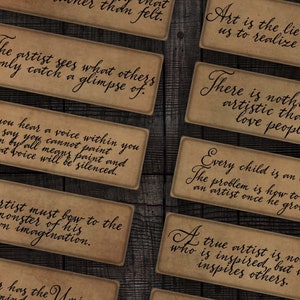 that
rather than felt.
The artist sees what others
only catch a glimpse of.
you hear a voice within you
say you cannot paint
by all means paint and
that voice will be silenced.
artist must bow to the
monster of his
own imagination.
has the
Art is the lie
us to realize
There is noth
artistic tha
love people
Every child is an
The problem is how to
an artist once he gro
A true artist is no
who is inspired, but
inspires others.